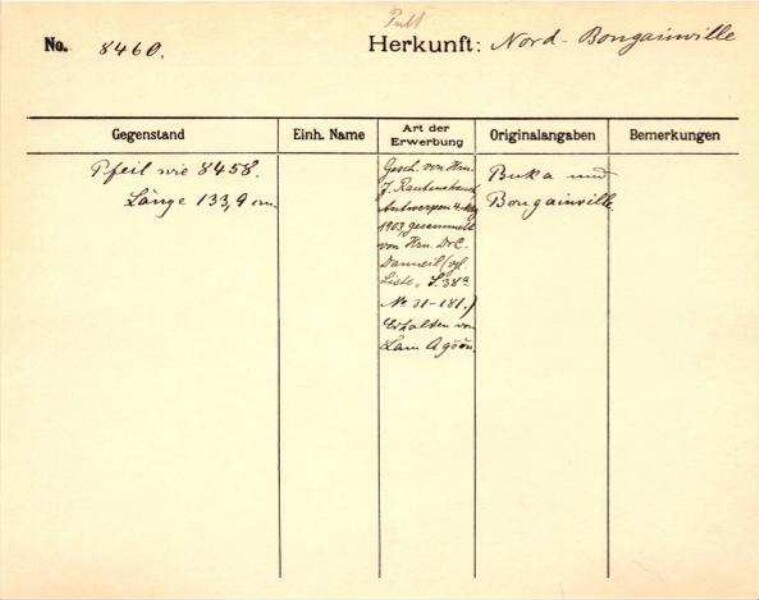 No. 8460.
Herkunft: Nord-Bougainville
Gegenstand
Einh. Name
Art der Erwerbung
Originalangaben
Bemerkungen
Pfeil wie 8458.
Länge 133,9 cm.
Gesch. von Hrn.
J. Rautenstrauch
Antwerpen 4. May
1903, gesammelt
von Hrn. Dr. C.
Danneil (vgl.
Liste, S. 38a
No 31-181.)
Erhalten von
Lam
Buka und
Bougainville.